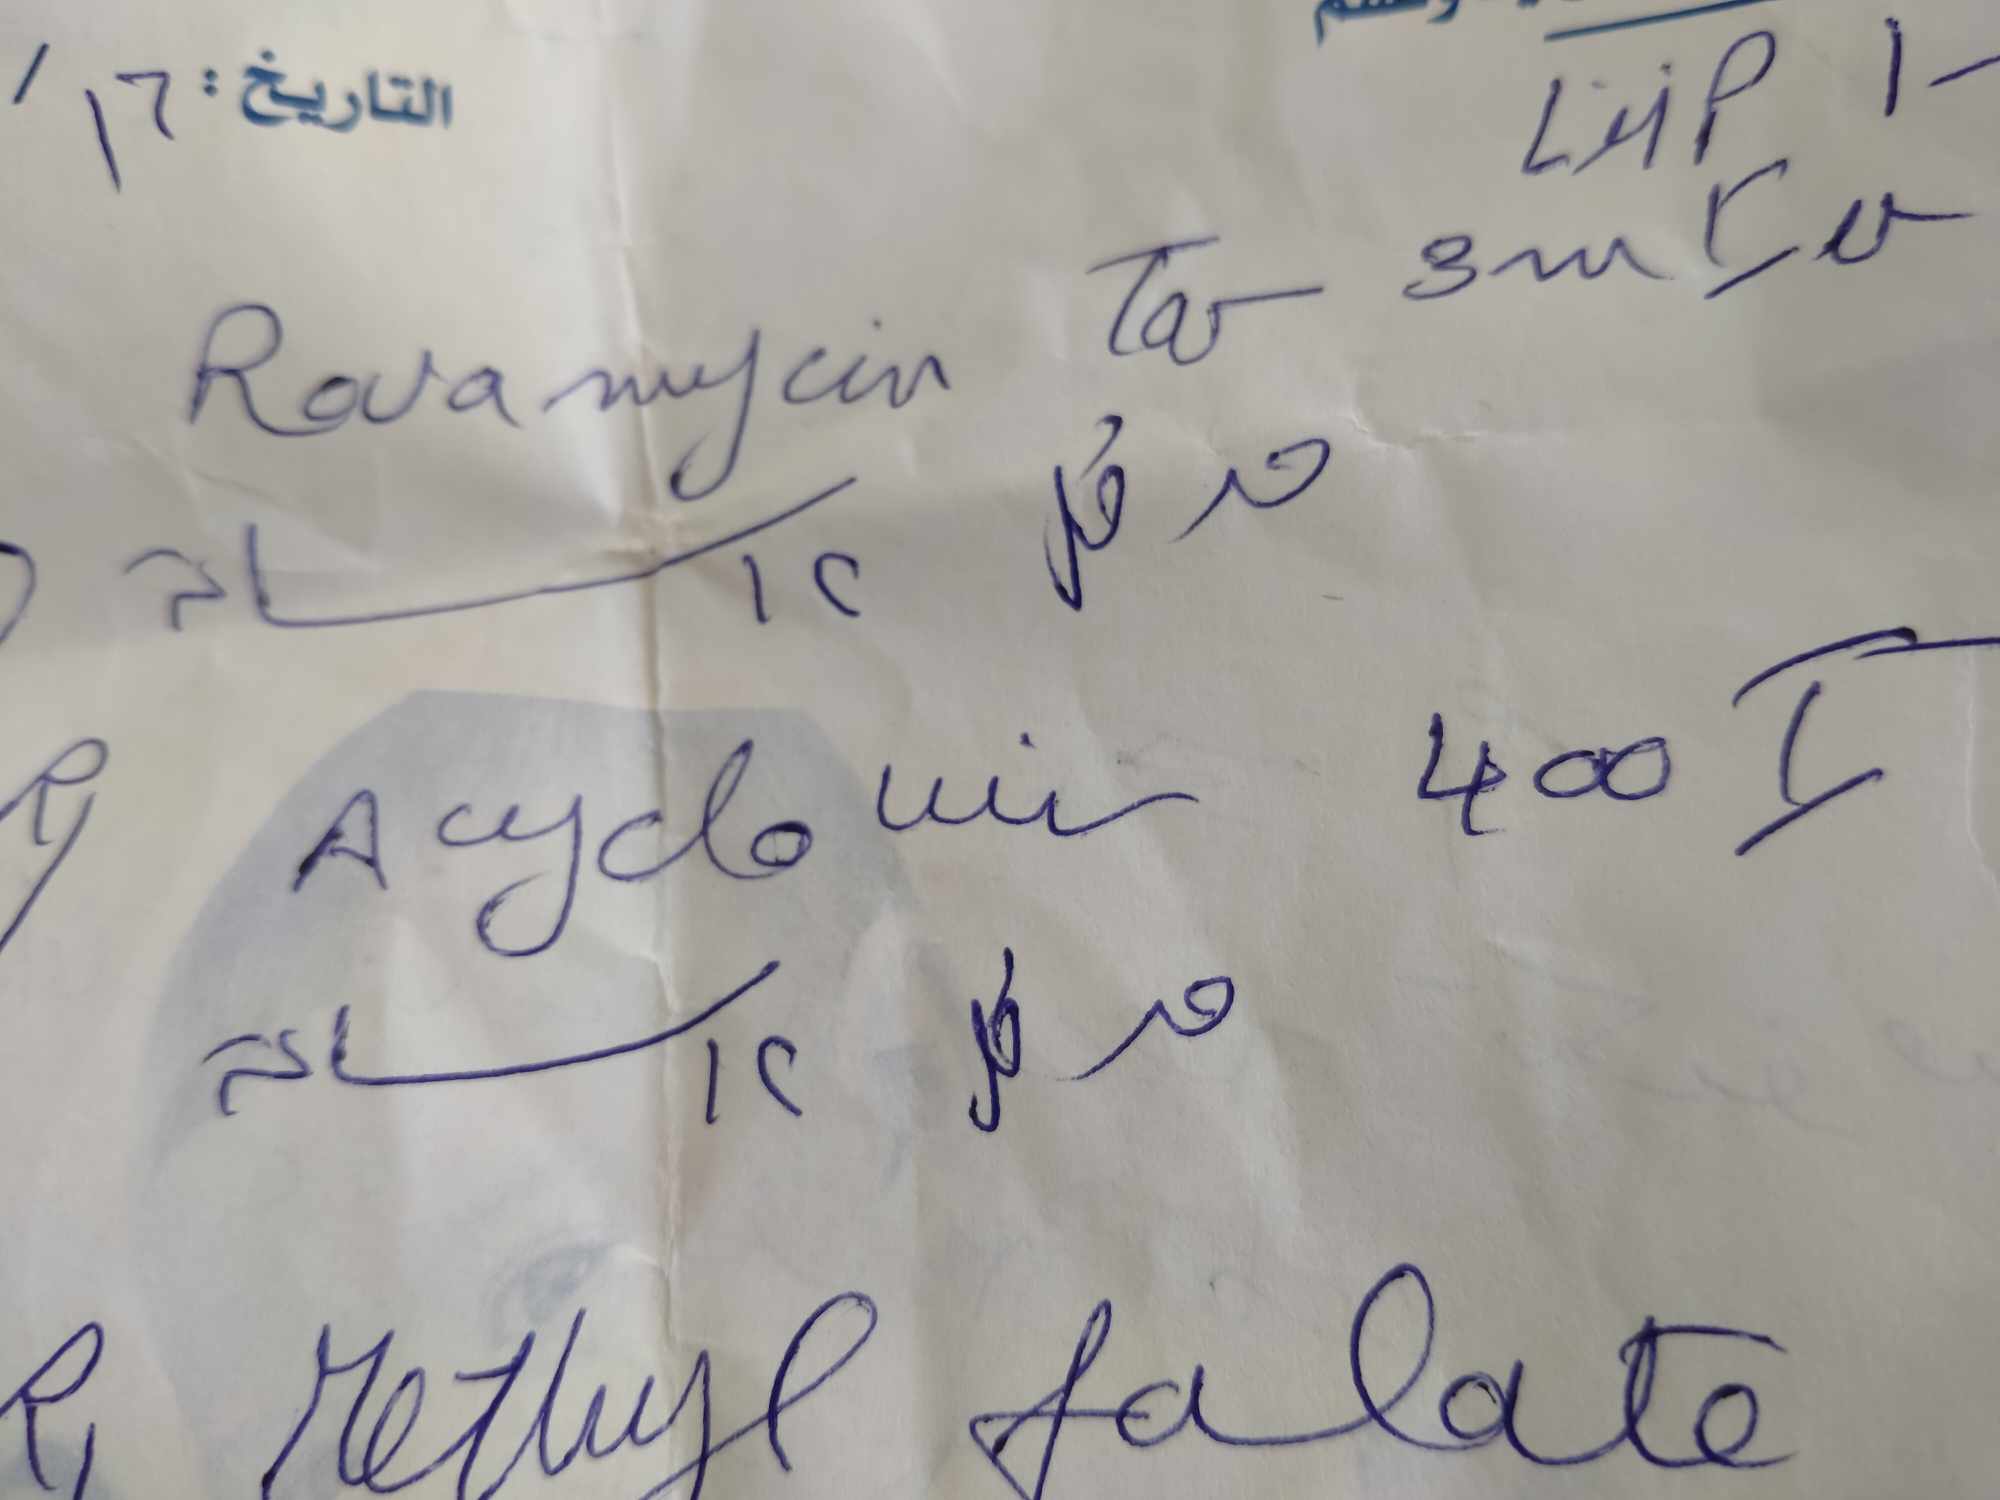 التاريخ: ١٦ /
LMP 1-
Rovamycin Tab 3m
قرص كل ١٢ ساعة
R/ Acyclovir 400 T
قرص كل ١٢ ساعة
R/ Methyl folate